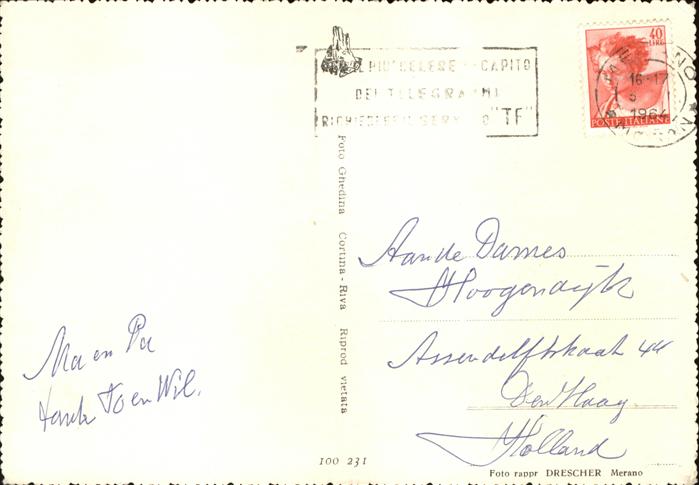 PIU' CELERE RECAPITO
DEI TELEGRAMMI
RICHIEDERE IL SERVIZIO "TF"
40
LIRE
16-17
1964
POSTE ITALIANE
Foto Ghedina Cortina - Riva Riprod vietata
Aan de Dames
Hoogendijk
Assendelftstraat 44
Den Haag
Holland
Ma en Pa
Henk To en Wil.
100 231
Foto rappr DRESCHER Merano